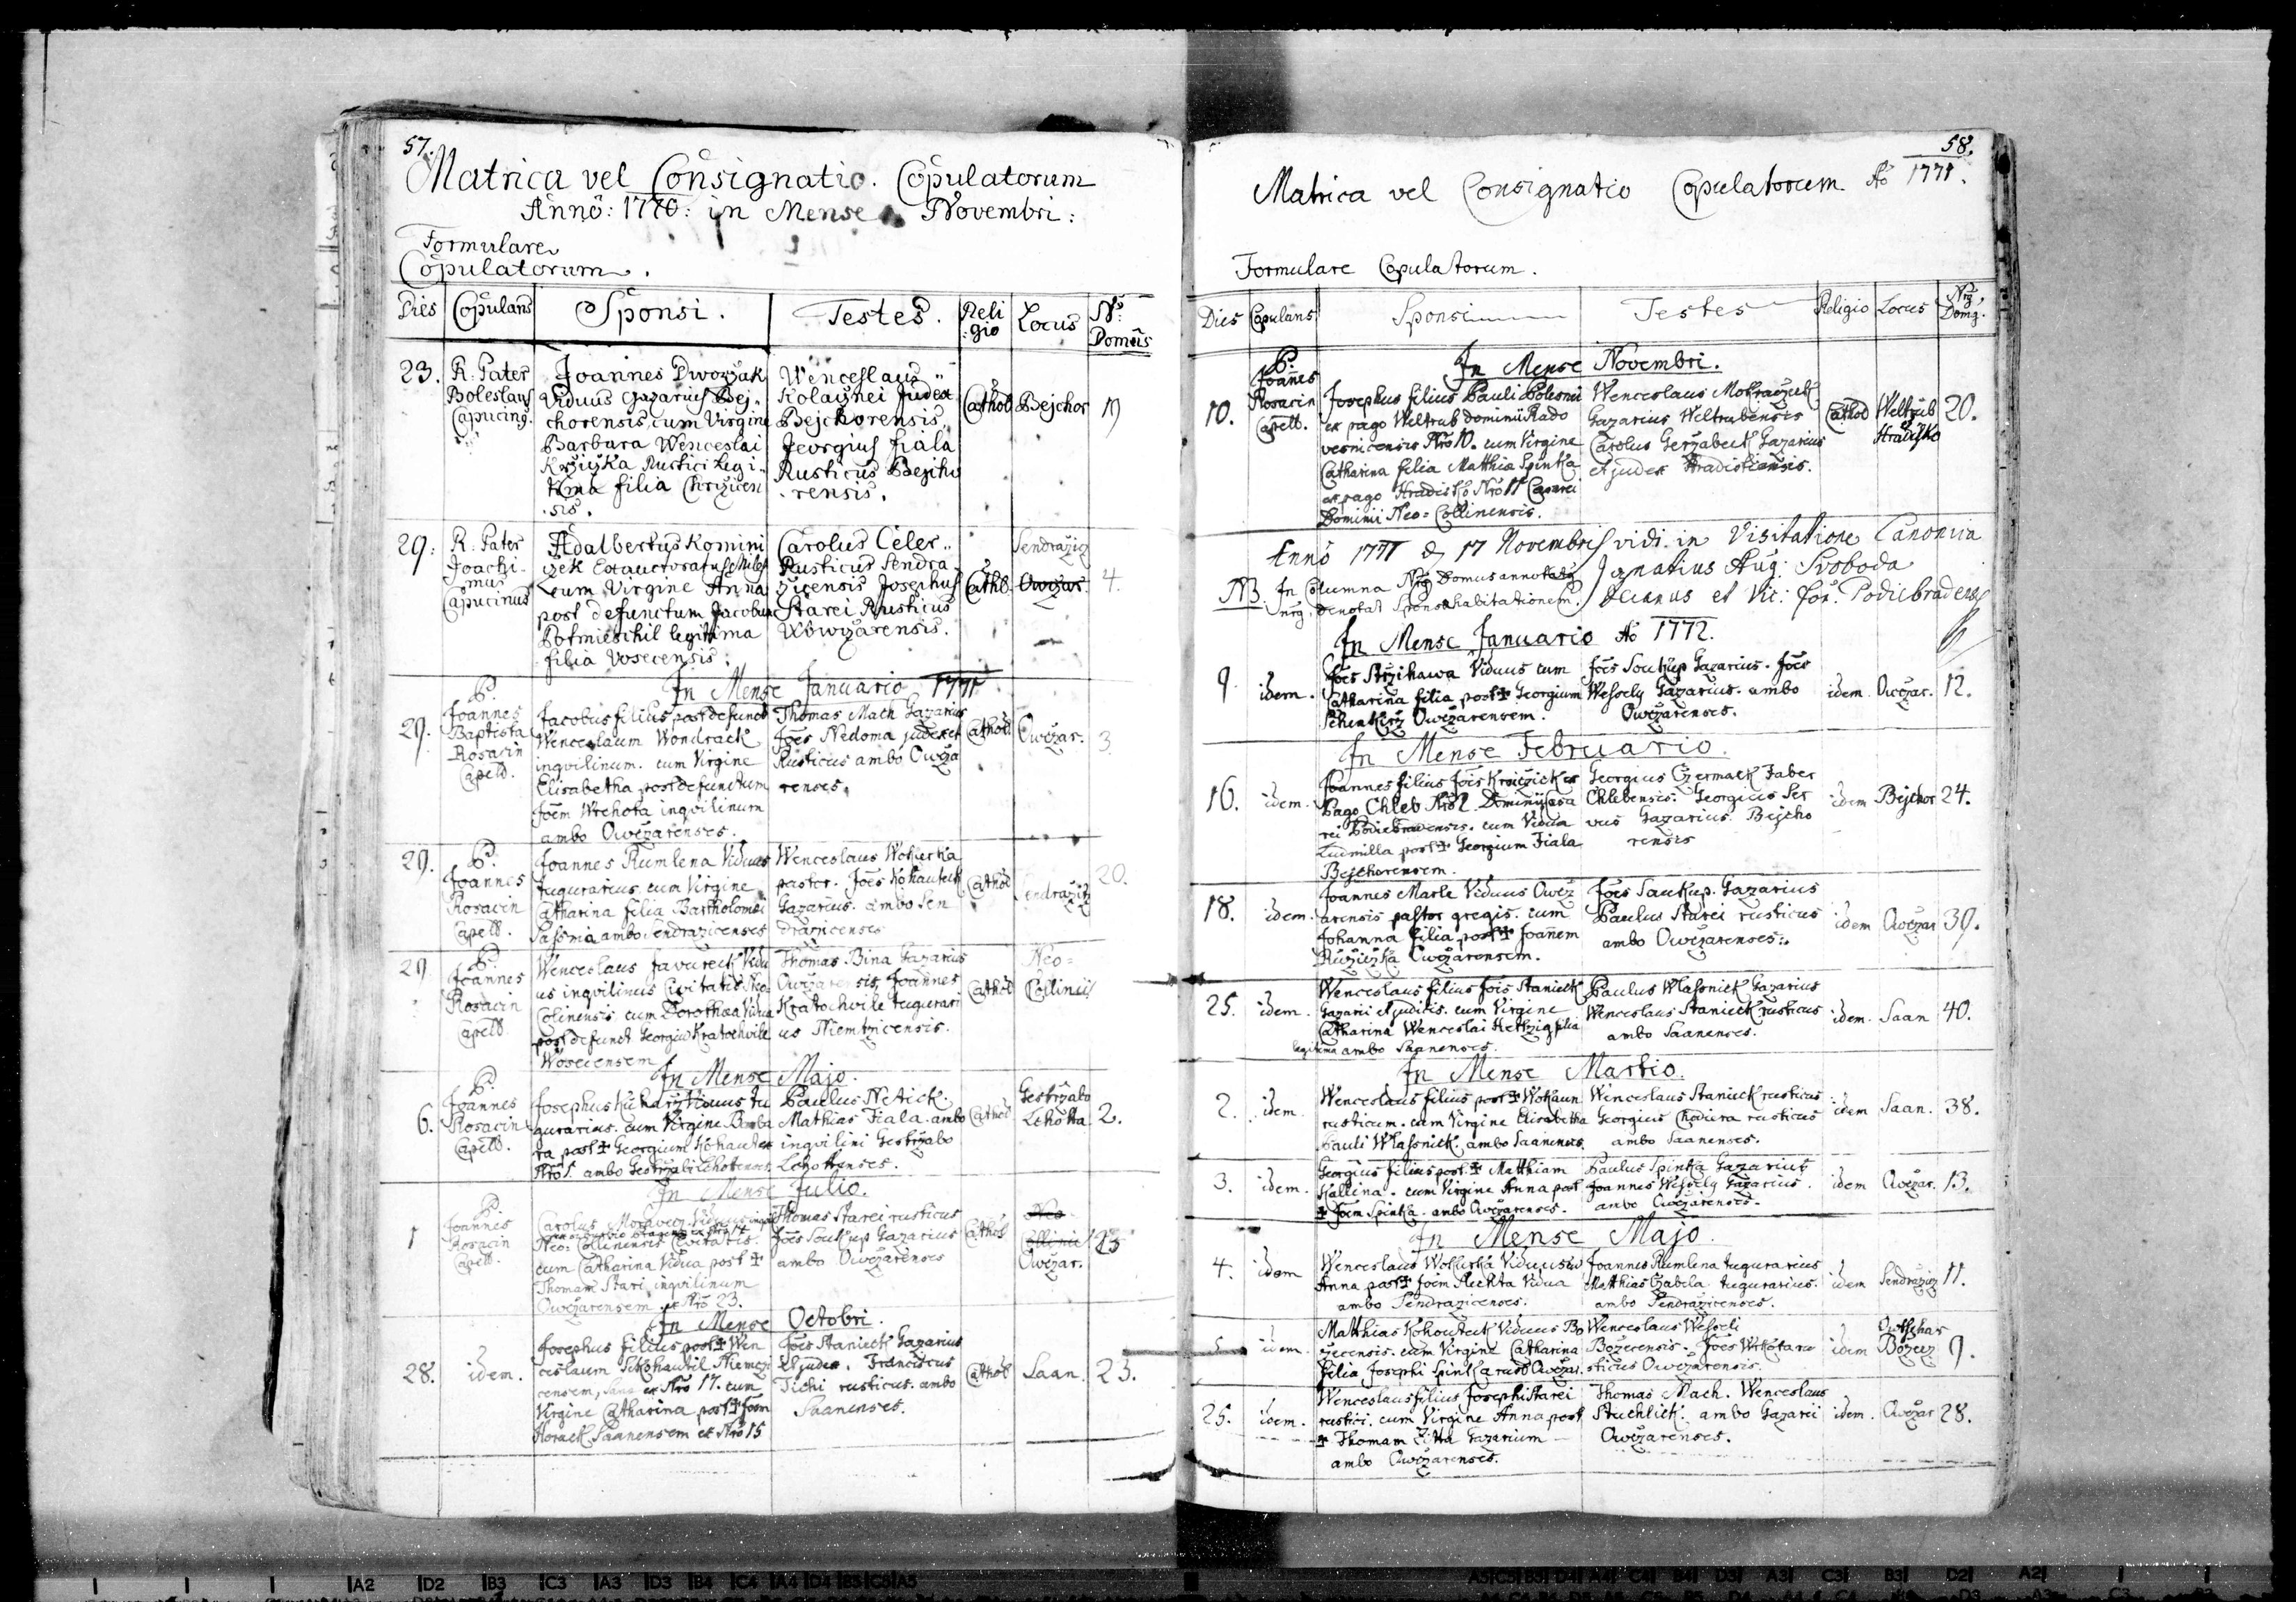 57.
Matrica vel Consignatio. Copulatorum
Anno: 1770: in Mense Novembri:
Formulare
Copulatorum.
Dies Copulans Sponsi. Testes. Reli gio Locus No: Domus
23. R: Pater Boleslaus Capucinus
Joannes Dworzak
Viduus Gazarius Bej-
chorensis, cum Virgine
Barbara Wenceslai
Rustici Legi-
tima filia
sis.
Wenceslaus
Kolaynei Judex
Bejchorensis,
Georgius fiala
Rusticus Bejcho
rensis.
Cathol Bejchor 19
29. R: Pater Joachi- mus Capucinus
Adalbertus Komini
czek Exauctoratus Miles
cum Virgine Anna
post defunctum Jacobum
legitima
filia Vosecensis.
Carolus Celer
Rusticus Sendra
zicensis Josephus
Starei Rusticus
Cathl. Sendrazicz Owczar. 4.
In Mense Januario 1771
29. P. Joannes Baptista Rosacin Capell.
Jacobus filius post defunct
Wenceslaum Wondracek
inqvilinum. cum Virgine
Elisabetha post defunctum
Joem Wrehota inqvilinum
ambo Owczarenses.
Thomas Mach Gazarius
Joes Nedoma judex et
Rusticus ambo Owcza
renses.
Cathol Owczar. 3
29. P. Joannes Rosacin Capell.
Joannes Rumlena Viduus
Tugurarius cum Virgine
Catharina filia Bartholomei
ambo Sendrazicenses
Wenceslaus Wokurka
pastor. Joes Kohautek
Gazarius. ambo Sen
drazicenses
Cathol Sendrazitz 20.
29 P. Joannes Rosacin Capell
Wenceslaus Javureck Vidu
us inqvilinus Civitatis Neo
Colinensis cum Dorothea Vidua
post defunct Georgiu Kratochvile
Wosecensem
Thomas Bina Gazarius
Owczarensis, Joannes
Kratochvile tugurari
us Niemczicensis.
Cathol Neo= Collinii
In Mense Majo.
6. P. Joannes Rosacin Capell.
Josephus Kucharz Viduus tu
gurarius. cum Virgine Barba
ra post † Georgium Kohautek
Nro 5. ambo
Paulus Netick.
Mathias Fiala. ambo
inqvilini Gestrzabo
Lehottenses.
Cathol Gestrzabo Lehotta 2.
In Mense Julio.
1 P. Joannes Rosacin Capell.
Carolus Moravecz Viduus
Neo= Collinensis Civitatis.
cum Catharina Vidua post †
Thomam Stari inqvilinum
Owczarensem ex Nro 23.
Thomas Starei rusticus
Joes Soukup Gazarius
ambo Owczarenses
Cathol Neo Collinii Owczar. 23
In Mense Octobri.
28. idem.
Josephus filius post † Wen
ceslaum Niemczi
censem, ex Nro 17. cum
Virgine Catharina post † Joem
Horack Saanensem ex Nro 15
Joes Stanieck Gazarius
et judex. Franciscus
Tichi rusticus. ambo
Saanenses.
Cathol Saan. 23.
58.
Matrica vel Consignatio Copulatorum. Ao 1771.
Formulare Copulatorum.
Dies Copulans Sponsi Testes Religio Locus Nrg Domg.
In Mense Novembri.
10. P. Joanes Rosacin Capell.
Josephus filius Pauli Bolesnii
ex pago Weltrub dominii Rado
vesnicensis Nro 10. cum Virgine
Catharina filia Matthiae Spinka
ex pago Hradisko Nro 11 Casarei
Dominii Neo= Collinensis.
Wenceslaus Mokraczek
Gazarius Weltrubensis
Carolus Gerzabeck Gazarius
et judex Hradistiensis.
Cathol Weltrub Hradisko 20.
Anno 1771 d 17 Novembris vidi in Visitatione Canonica
Ignatius Aug: Svoboda
Decanus et Vic: for. Podiebradensis
NB. In Columna Nrg Domus annotatg
nrg. denotat Sponsae habitationem.
In Mense Januario Ao 1772.
9. idem.
Joes Strzihawa Viduus cum
Catharina filia post † Georgium
Schenkirz Owczarensem.
Joes Soukup Gazarius. Joes
Wessely Gazarius. ambo
Owczarenses.
idem Owczar. 12.
In Mense Februario.
16. idem.
Joannes filius Jois Kroiczick ex
Pago Chleb Nro 2. Dominii Casa
rei Podiebradensis. cum Vidua
Ludmilla post † Georgium Fiala
Bejchorensem.
Georgius Czermack Faber
Chlebensis. Georgius Ser
vus Gazarius. Bejcho
rensis
idem Bejchor 24.
18. idem.
Joannes Marle Viduus Owcz
arensis pastor gregis. cum
Johanna filia post † Joannem
Ruziczka Owczarensem.
Joes Saukup. Gazarius
Paulus Starei rusticus
ambo Owczarenses.
idem Owczar 39.
25. idem.
Wenceslaus filius Jois Stanieck
Gazarii et judicis. cum Virgine
Catharina Wenceslai Hertzig filia
legitima ambo Saanenses.
Paulus Wlassnick Gazarius
Wenceslaus Stanieck rusticus
ambo Saanenses.
idem. Saan 40.
In Mense Martio.
2. idem.
Wenceslaus filius post † Wokaun
rusticum. cum Virgine Elisabetha
Pauli Wlassnick. ambo Saanenses
Wenceslaus Stanieck rusticus
Georgius Chadira rusticus
ambo Saanenses.
idem Saan. 38.
3. idem.
Georgius filius post. † Matthiam
Kallina. cum Virgine Anna post
† Joem Spinka. ambo Owczarenses.
Paulus Spinka Gazarius
Joannes Wessely Gazarius.
ambo Owczarenses.
idem Owczar. 13.
In Mense Majo.
4. idem
Wenceslaus Wokurka Viduus cu
Anna post † Joem Plechta Vidua
ambo Sendrazicenses.
Joannes Rumlena tugurarius
Matthias Czabela tugurarius.
ambo Sendrazicenses.
idem Sendrazicz 11.
5 idem
Matthias Kohouteck Viduus Bo
zecensis. cum Virgine Catharina
filia Josephi Spinka rust Owczar.
Wenceslaus Wesseli
Bozecensis. Joes Wrhota ru
sticus Owczarensis.
idem Bozecz 9.
25. idem.
Wenceslaus filius Josephi Starei
rustici. cum Virgine Anna post
† Thomam Zitta Gazarium
ambo Owczarenses.
Thomas Mach. Wenceslaus
Stuchlick. ambo Gazarii
Owczarenses.
idem. Owczar 28.